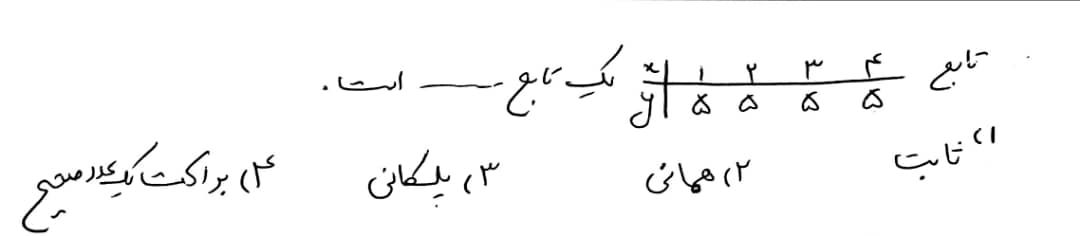 تابع x | ۱ ۲ ۳ ۴ یک تابع —— است.
y | ۵ ۵ ۵ ۵
۱) ثابت ۲) همانی ۳) پلکانی ۴) براکت یک عدد صحیح